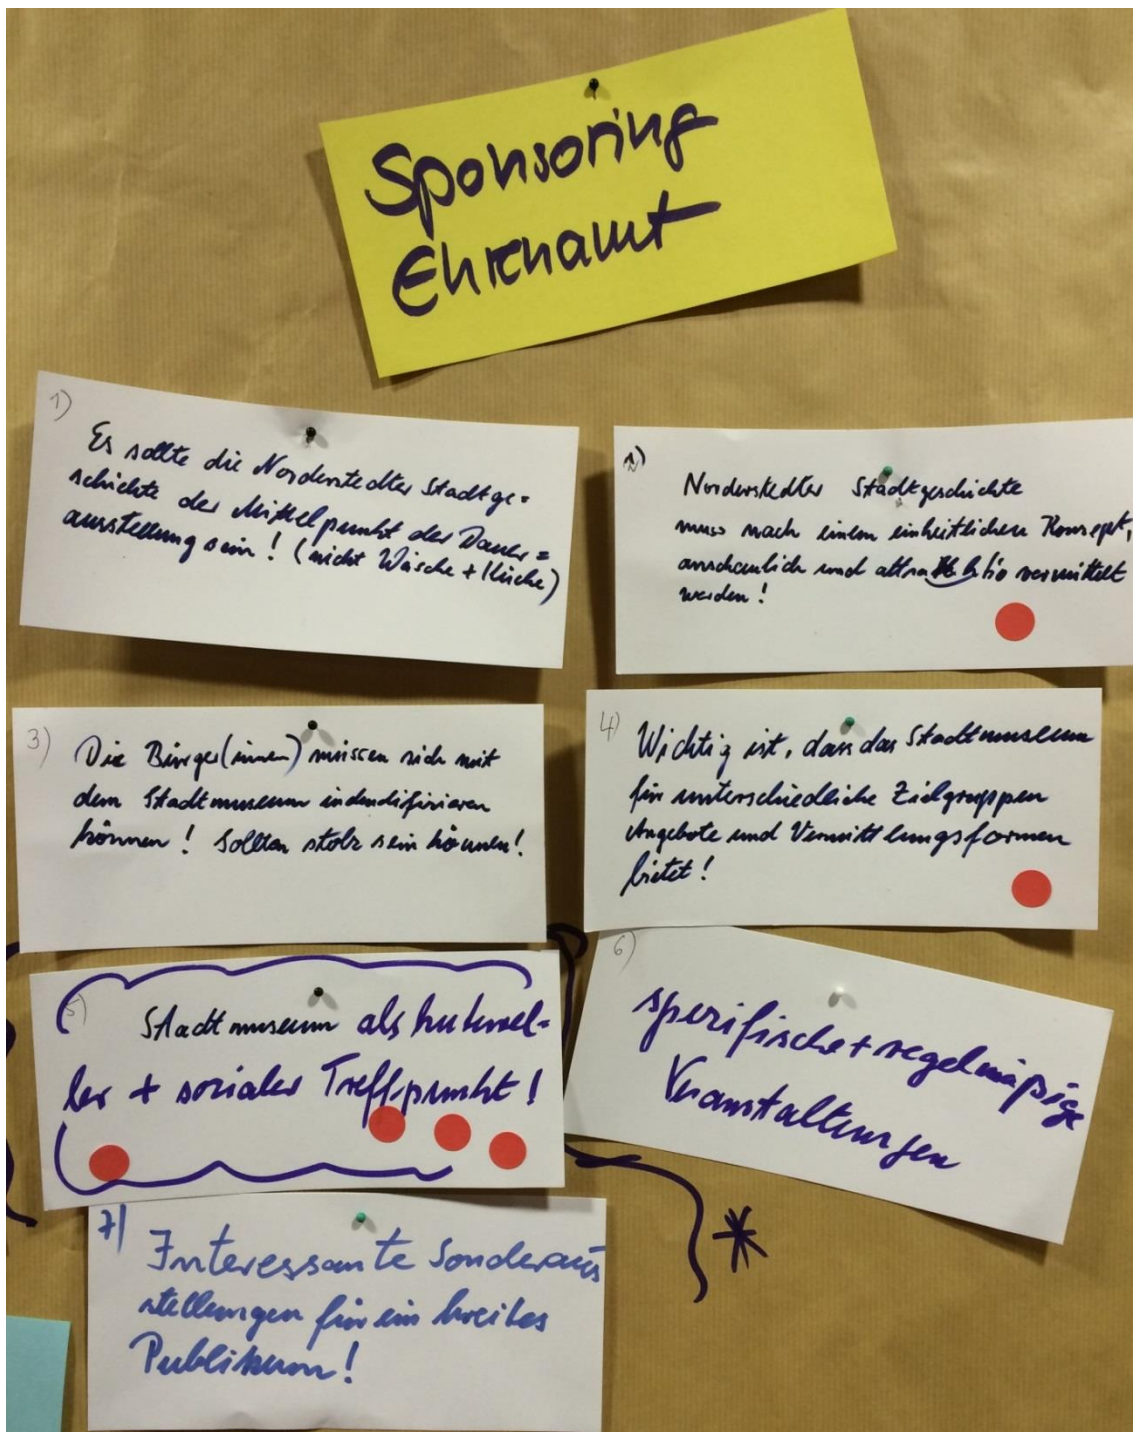 Sponsoring
Ehrenamt
1)
Es sollte die Norderstedter Stadtge=
schichte der Mittelpunkt der Dauer=
ausstellung sein! (nicht Wäsche + Küche)
2)
Norderstedter Stadtgeschichte
muss nach einem einheitlichen Konzept,
anschaulich und attraktiv vermittelt
werden!
3)
Die Bürger(innen) müssen sich mit
dem Stadtmuseum indendifizieren
können! Sollten stolz sein können!
4)
Wichtig ist, dass das Stadtmuseum
für unterschiedliche Zielgruppen
Angebote und Vermittlungsformen
bietet!
5)
Stadtmuseum als kulturel=
ler + sozialer Treffpunkt!
6)
spezifische + regelmäßige
Veranstaltungen
7)
Interessante Sonderaus
stellungen für ein breites
Publikum!